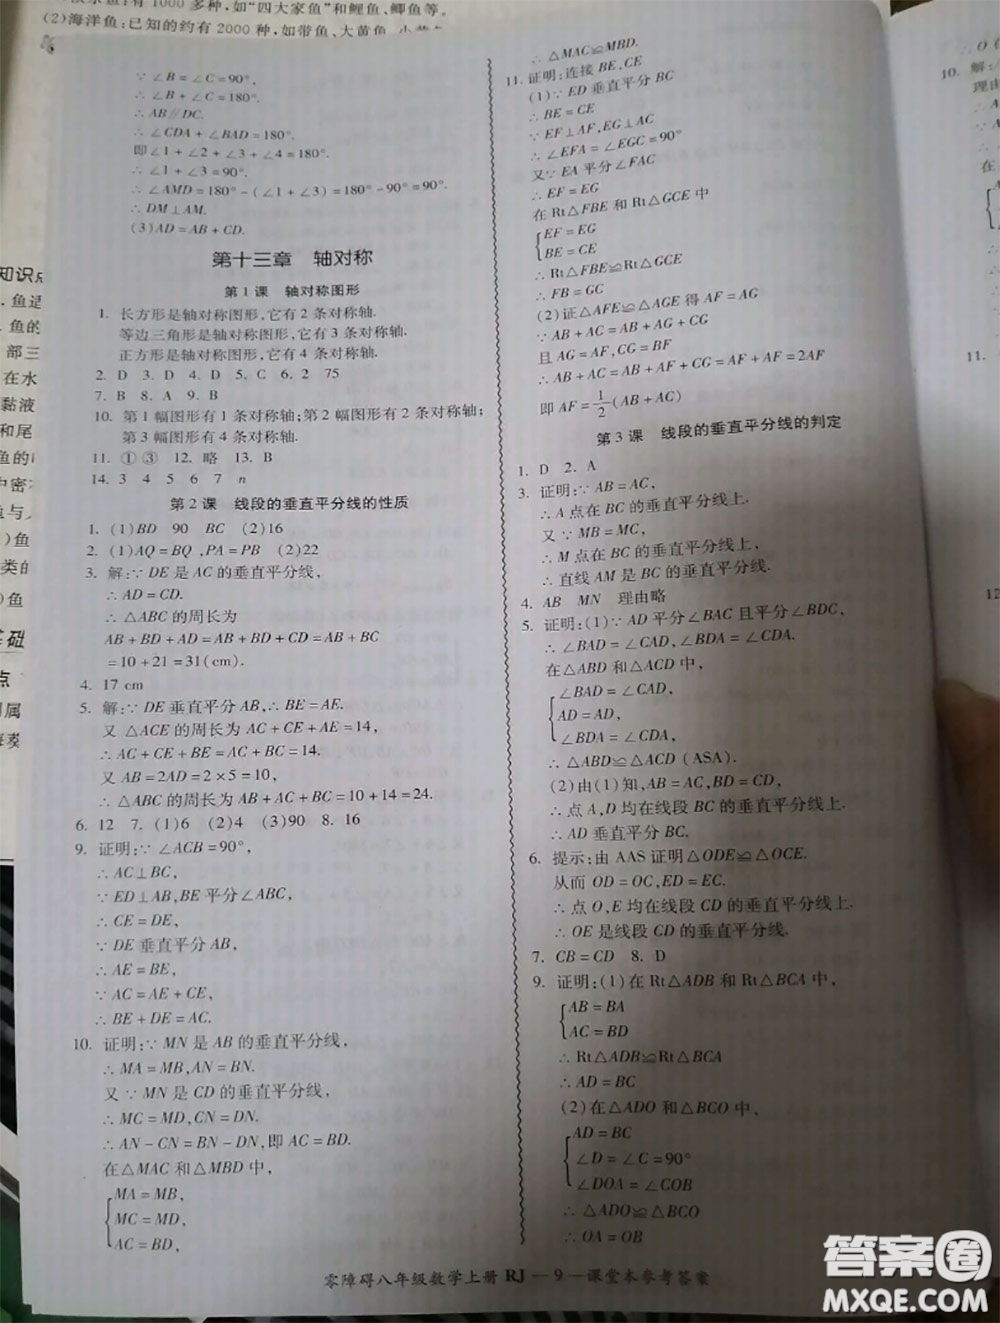 1000 多种,如“四大家鱼”和鲤鱼、鲫鱼等。
(2)海洋鱼:已知的约有 2000 种,如带鱼、大黄鱼
∵∠B=∠C=90°,
∴∠B+∠C=180°.
∴AB∥DC.
∴∠CDA+∠BAD=180°.
即∠1+∠2+∠3+∠4=180°.
∴∠1+∠3=90°.
∴∠AMD=180°-(∠1+∠3)=180°-90°=90°.
∴DM⊥AM.
(3)AD=AB+CD.
第十三章 轴对称
第1课 轴对称图形
1. 长方形是轴对称图形,它有 2 条对称轴.
等边三角形是轴对称图形,它有 3 条对称轴.
正方形是轴对称图形,它有 4 条对称轴.
2. D 3. D 4. D 5. C 6. 2 75
7. B 8. A 9. B
10. 第 1 幅图形有 1 条对称轴;第 2 幅图形有 2 条对称轴;
第 3 幅图形有 4 条对称轴.
11. ①③ 12. 略 13. B
14. 3 4 5 6 7 n
第2课 线段的垂直平分线的性质
1. (1)BD 90 BC (2)16
2. (1)AQ=BQ,PA=PB (2)22
3. 解:∵DE 是 AC 的垂直平分线,
∴AD=CD.
∴△ABC 的周长为
AB+BD+AD=AB+BD+CD=AB+BC
=10+21=31(cm).
4. 17 cm
5. 解:∵DE 垂直平分 AB,∴BE=AE.
又△ACE 的周长为 AC+CE+AE=14,
∴AC+CE+BE=AC+BC=14.
又 AB=2AD=2×5=10,
∴△ABC 的周长为 AB+AC+BC=10+14=24.
6. 12 7. (1)6 (2)4 (3)90 8. 16
9. 证明:∵∠ACB=90°,
∴AC⊥BC,
∵ED⊥AB,BE 平分∠ABC,
∴CE=DE,
∵DE 垂直平分 AB,
∴AE=BE,
∵AC=AE+CE,
∴BE+DE=AC.
10. 证明:∵MN 是 AB 的垂直平分线,
∴MA=MB,AN=BN.
又∵MN 是 CD 的垂直平分线,
∴MC=MD,CN=DN.
∴AN-CN=BN-DN,即 AC=BD.
在△MAC 和△MBD 中,
MA=MB,
MC=MD,
AC=BD,
∴△MAC≌MBD.
11. 证明:连接 BE,CE
(1)∵ED 垂直平分 BC
∴BE=CE
∵EF⊥AF,EG⊥AC
∴∠EFA=∠EGC=90°
又∵EA 平分∠FAC
∴EF=EG
在 Rt△FBE 和 Rt△GCE 中
EF=EG
BE=CE
∴Rt△FBE≌Rt△GCE
∴FB=GC
(2)证△AFE≌△AGE 得 AF=AG
∵AB+AC=AB+AG+CG
且 AG=AF,CG=BF
∴AB+AC=AB+AF+CG=AF+AF=2AF
即 AF=1/2(AB+AC)
第3课 线段的垂直平分线的判定
1. D 2. A
3. 证明:∵AB=AC,
∴A 点在 BC 的垂直平分线上.
又∵MB=MC,
∴M 点在 BC 的垂直平分线上,
∴直线 AM 是 BC 的垂直平分线.
4. AB MN 理由略
5. 证明:(1)∵AD 平分∠BAC 且平分∠BDC,
∴∠BAD=∠CAD,∠BDA=∠CDA.
在△ABD 和△ACD 中,
∠BAD=∠CAD,
AD=AD,
∠BDA=∠CDA,
∴△ABD≌△ACD (ASA).
(2)由(1)知,AB=AC,BD=CD,
∴点 A,D 均在线段 BC 的垂直平分线上,
∴AD 垂直平分 BC.
6. 提示:由 AAS 证明△ODE≌△OCE.
从而 OD=OC,ED=EC.
∴点 O,E 均在线段 CD 的垂直平分线上,
∴OE 是线段 CD 的垂直平分线.
7. CB=CD 8. D
9. 证明:(1)在 Rt△ADB 和 Rt△BCA 中,
AB=BA
AC=BD
∴Rt△ADB≌Rt△BCA
∴AD=BC
(2)在△ADO 和△BCO 中,
AD=BC
∠D=∠C=90°
∠DOA=∠COB
∴△ADO≌△BCO
∴OA=OB
零障碍八年级数学上册 RJ — 9 — 课堂本参考答案
答案圈
MXQE.COM